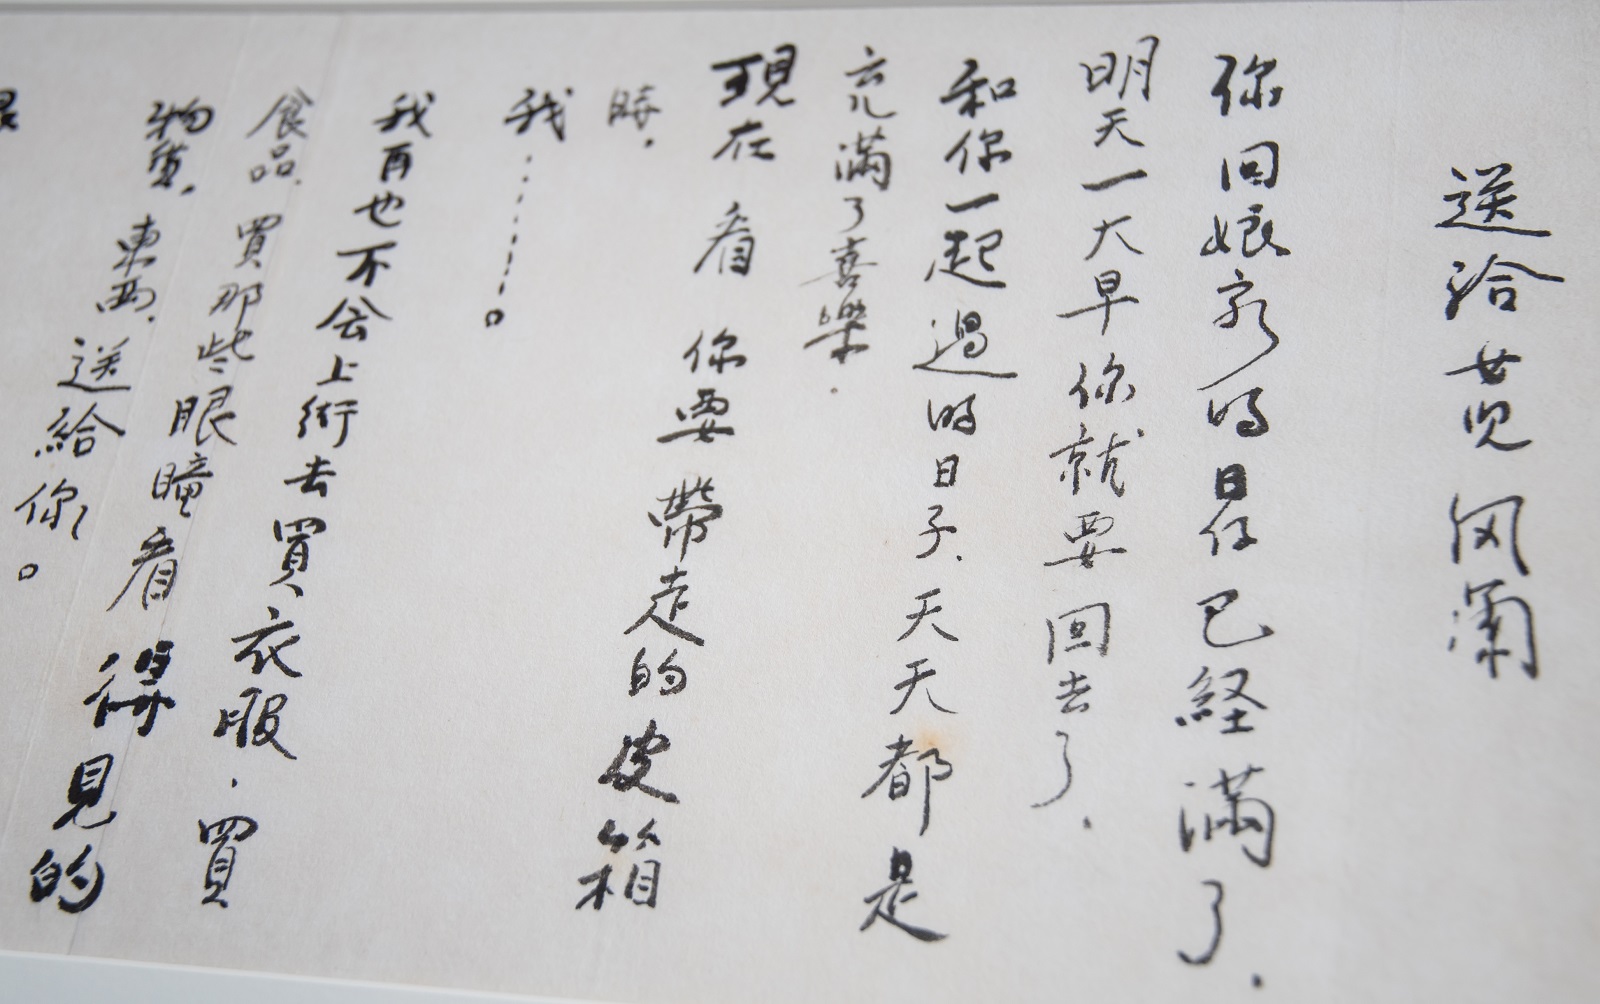 送給黄兒 風蘭
你回娘家的日子已經滿了.
明天一大早你就要回去了.
和你一起過的日子.天天都是
充滿了喜樂.
現在 看 你要帶走的皮箱
時.
我……。
我再也不会上街去買衣服.買
食品.買那些眼瞳看得見的
物質.東西.送給你。